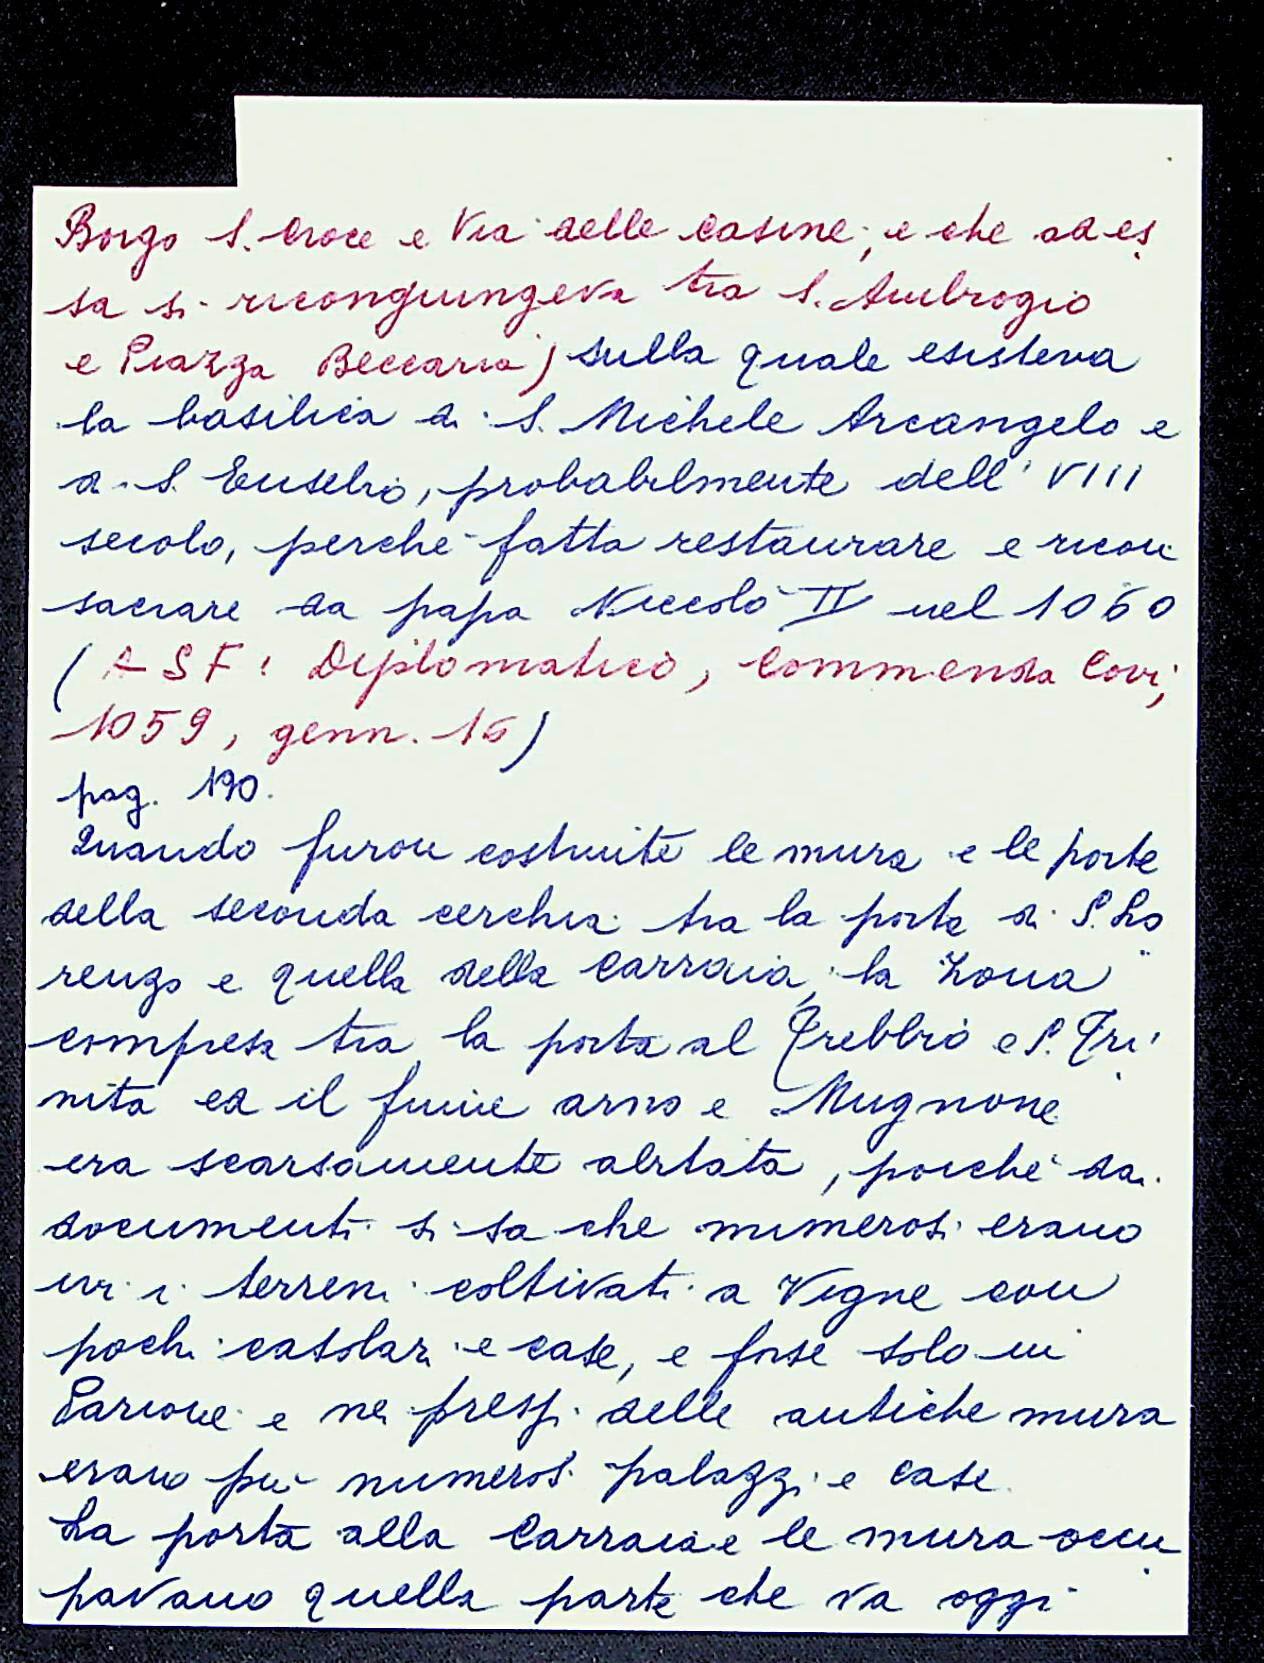 Borgo S. Croce e Via delle Casine, e che ad es
sa si ricongiungeva tra S. Ambrogio
e Piazza Beccaria) sulla quale esisteva
la basilica di S. Michele Arcangelo e
di S. Eusebio, probabilmente dell' VIII
secolo, perchè fatta restaurare e ricon
sacrare da papa Niccolò II nel 1060
(ASF: Diplomatico, Commenda Covi,
1059, genn. 16)
pag. 190.
Quando furon costruite le mura e le porte
della seconda cerchia tra la porta di S. Lo
renzo e quella della Carraia, la "zona"
compresa tra la porta al Trebbio e S. Tri
nita ed il fiume arno e Mugnone
era scarsamente abitata, poichè da
documenti si sa che numerosi erano
ivi i terreni coltivati a Vigne con
pochi casolari e case, e forse solo in
Parione e nei pressi delle antiche mura
erano più numerosi palazzi e case.
La porta alla Carraia e le mura occu
pavano quella parte che va oggi